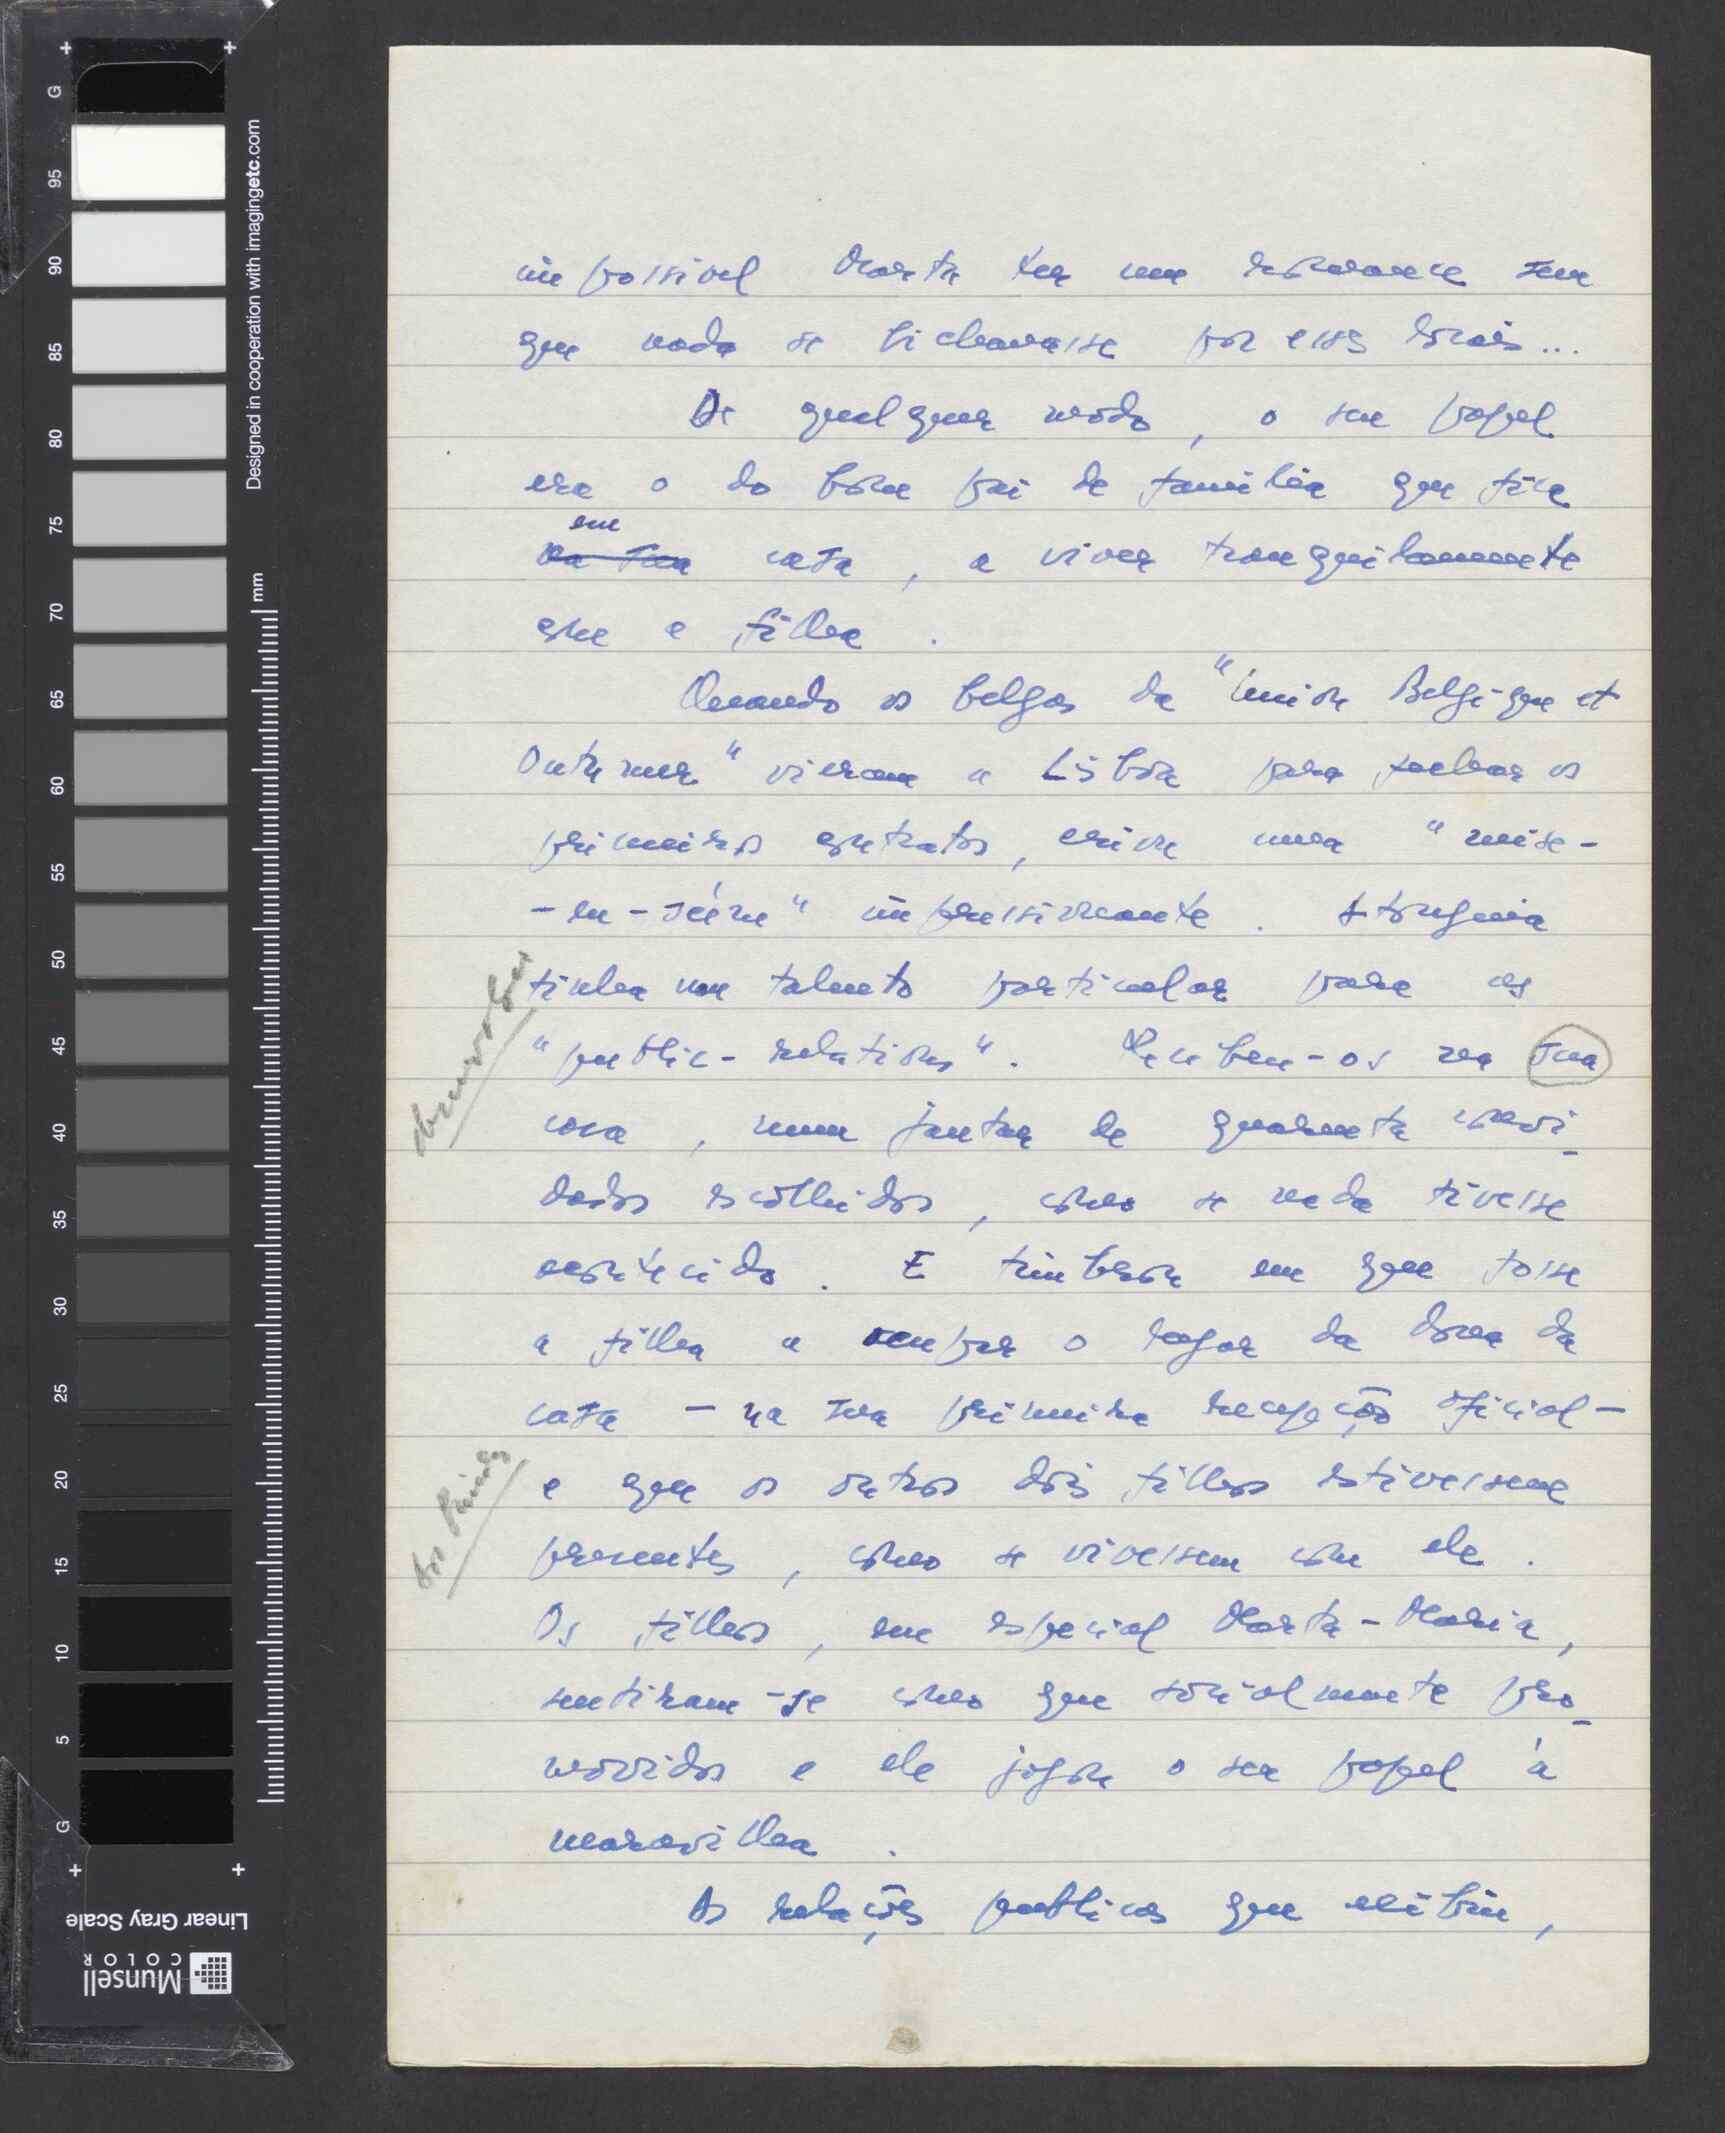 impossivel Marta ter um romance sem
que nada se bichanasse por esses locais...
De qualquer modo, o seu papel
era o do bom pai de familia que fica
em
na sua casa, a viver tranquilamente
com a filha.
Quando os belgas da "Union Belgique et
Outremer" vieram a Lisboa para fechar os
primeiros contratos, criou uma "mise-
-en-scéne" impressionante.
tinha um talento particular para as
"public-relations". Recebeu-os na sua
casa, num jantar de quarenta convi-
dados escolhidos, como se nada tivesse
acontecido. E timbrou em que fosse
a filha a ocupar o lugar da dona da
casa - na sua primeira recepção oficial -
e que os outros dois filhos estivessem
presentes, como se vivessem com ele.
Os filhos, em especial Marta-Maria,
sentiram-se como que socialmente pro-
movidos e ele jogou o seu papel à
maravilha.
As relações publicas que exibiu,
G
95
90
85
80
75
70
65
60
55
50
45
40
35
30
25
20
15
10
5
G
Designed in cooperation with imagingetc.com
mm
Linear Gray Scale
Munsell
COLOR